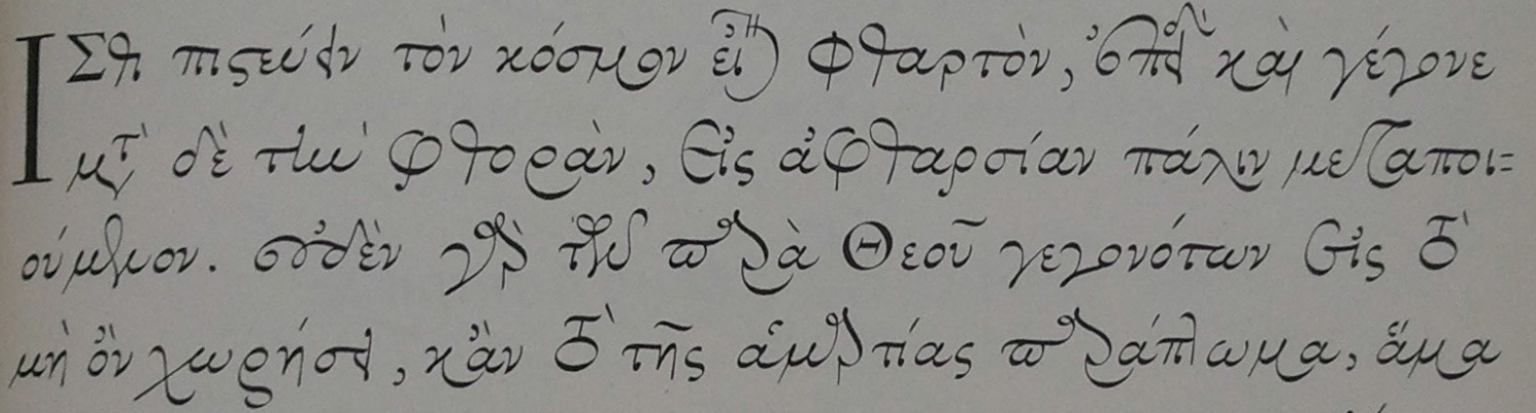 ΙΣθι πιστεύειν τὸν κόσμον εἶναι φθαρτὸν, ἐπειδὴ καὶ γέγονε
μετὰ δὲ τὴν φθορὰν, εἰς ἀφθαρσίαν πάλιν μεταποι=
ούμενον. οὐδὲν γὰρ τῶν παρὰ Θεοῦ γεγονότων εἰς τὸ
μὴ ὂν χωρήσει, κἂν τὸ τῆς ἁμαρτίας παράπτωμα, ἅμα